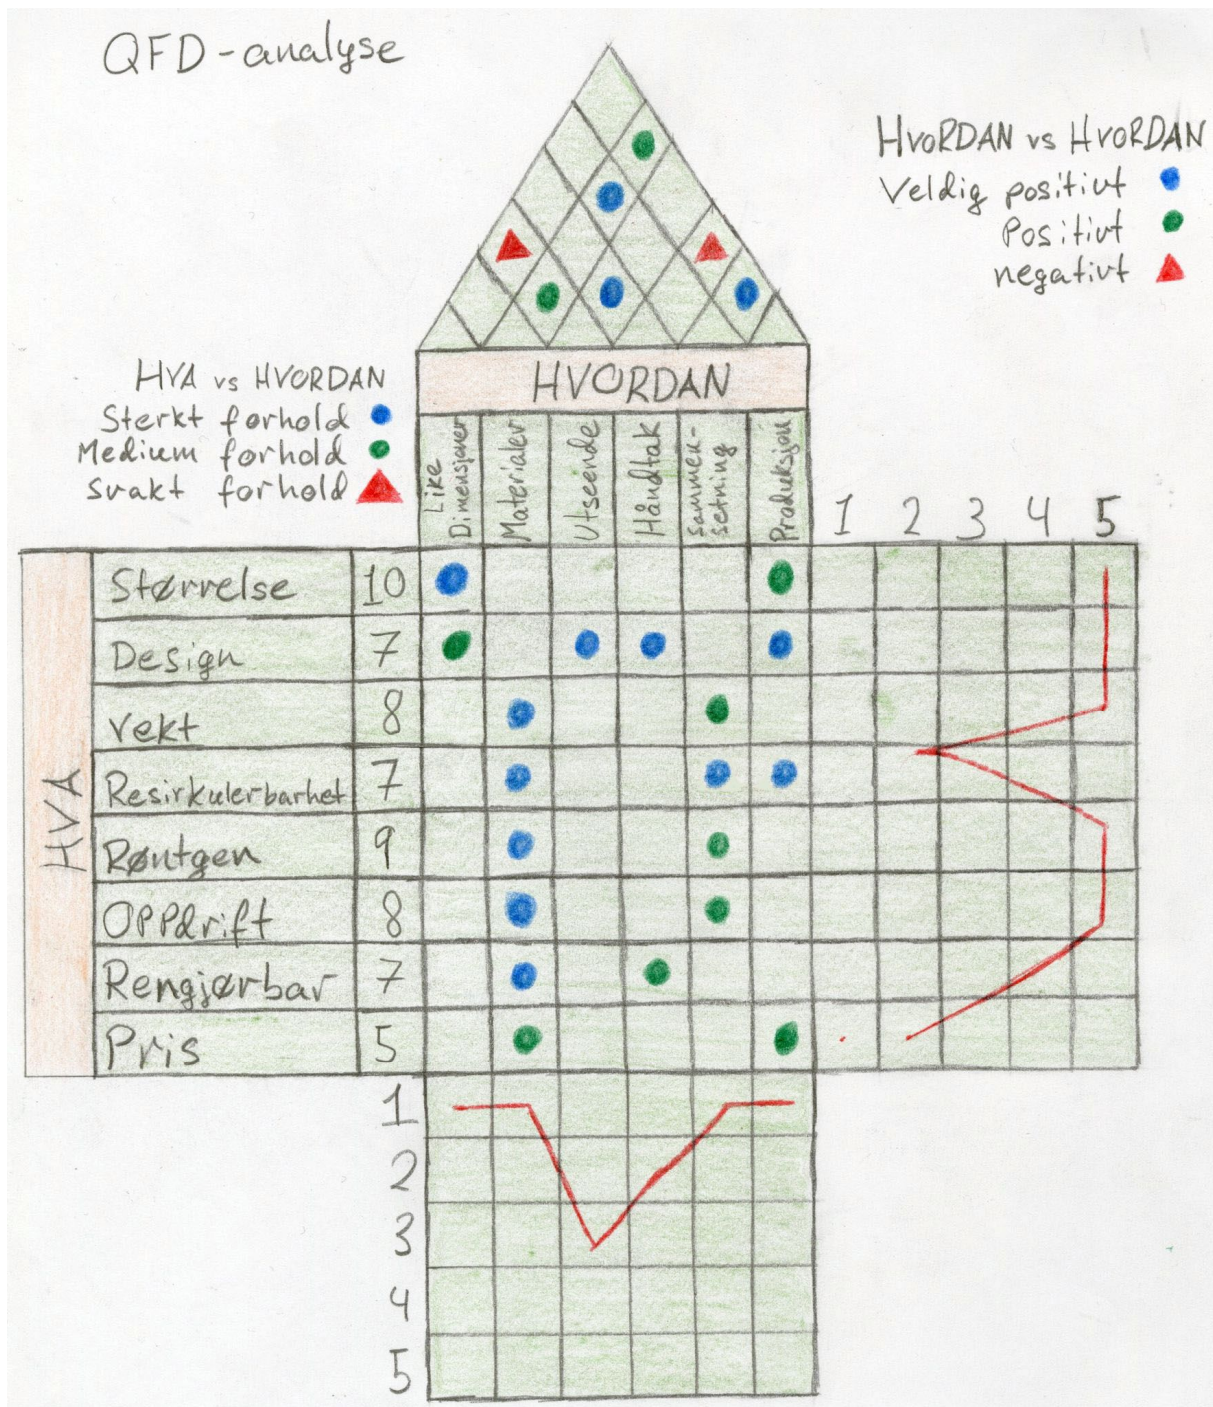 QFD-analyse
HVORDAN vs HVORDAN
Veldig positivt
Positivt
negativt
HVA vs HVORDAN
Sterkt forhold
Medium forhold
Svakt forhold
HVORDAN
Like
Dimensjoner
Materialer
Utseende
Håndtak
Sammen-
setning
Produksjon
1 2 3 4 5
HVA
Størrelse 10
Design 7
Vekt 8
Resirkulerbarhet 7
Røntgen 9
Oppdrift 8
Rengjørbar 7
Pris 5
1
2
3
4
5